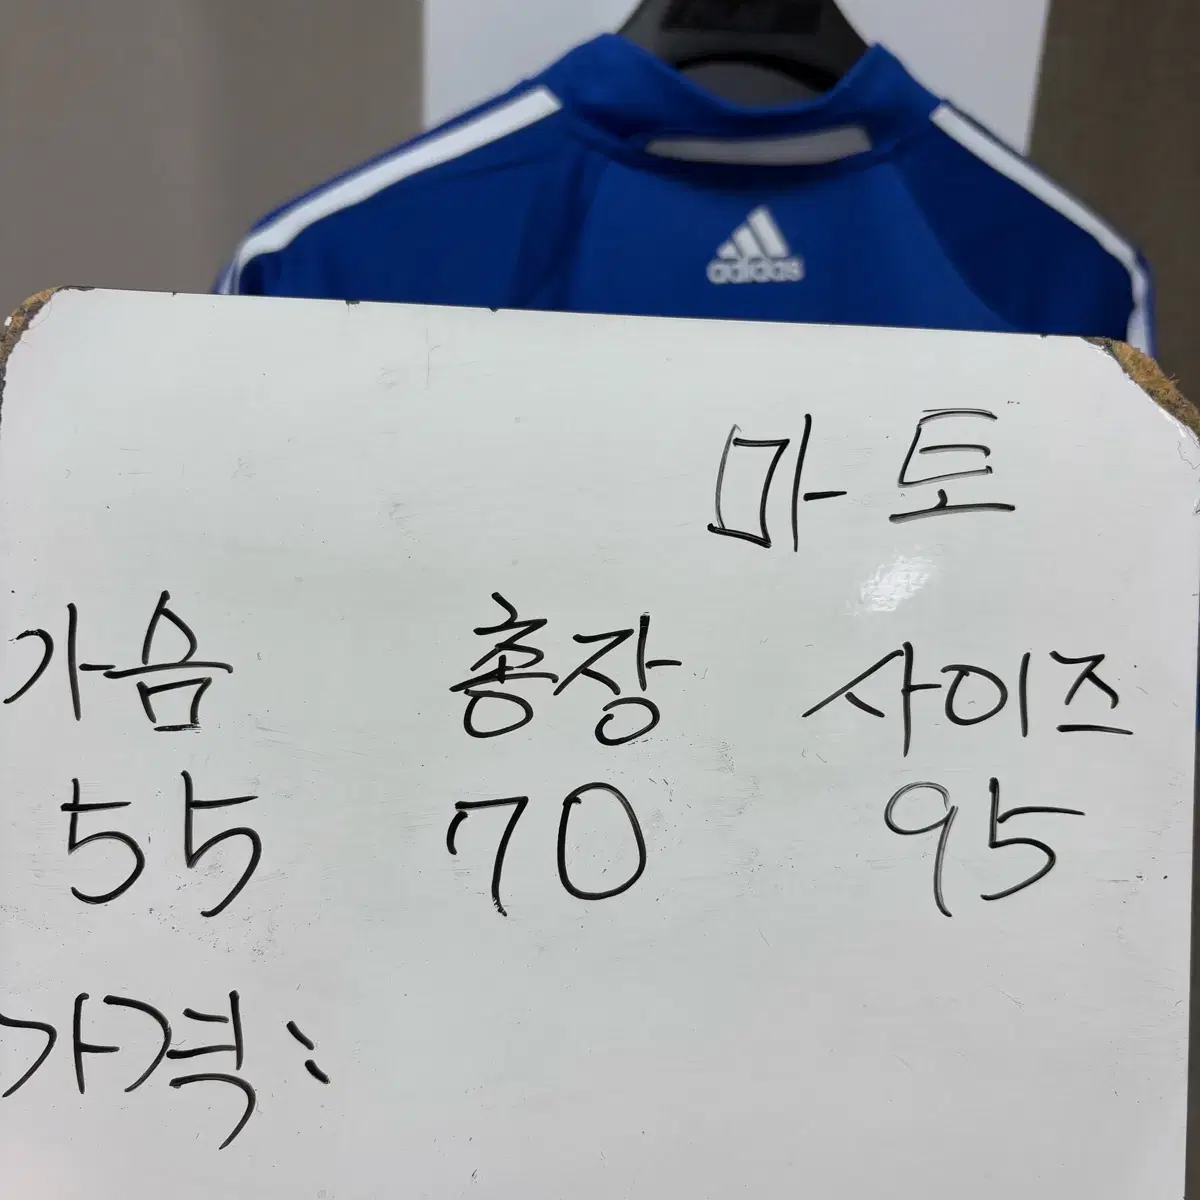 adidas
마토
가슴 총장 사이즈
55 70 95
가격: